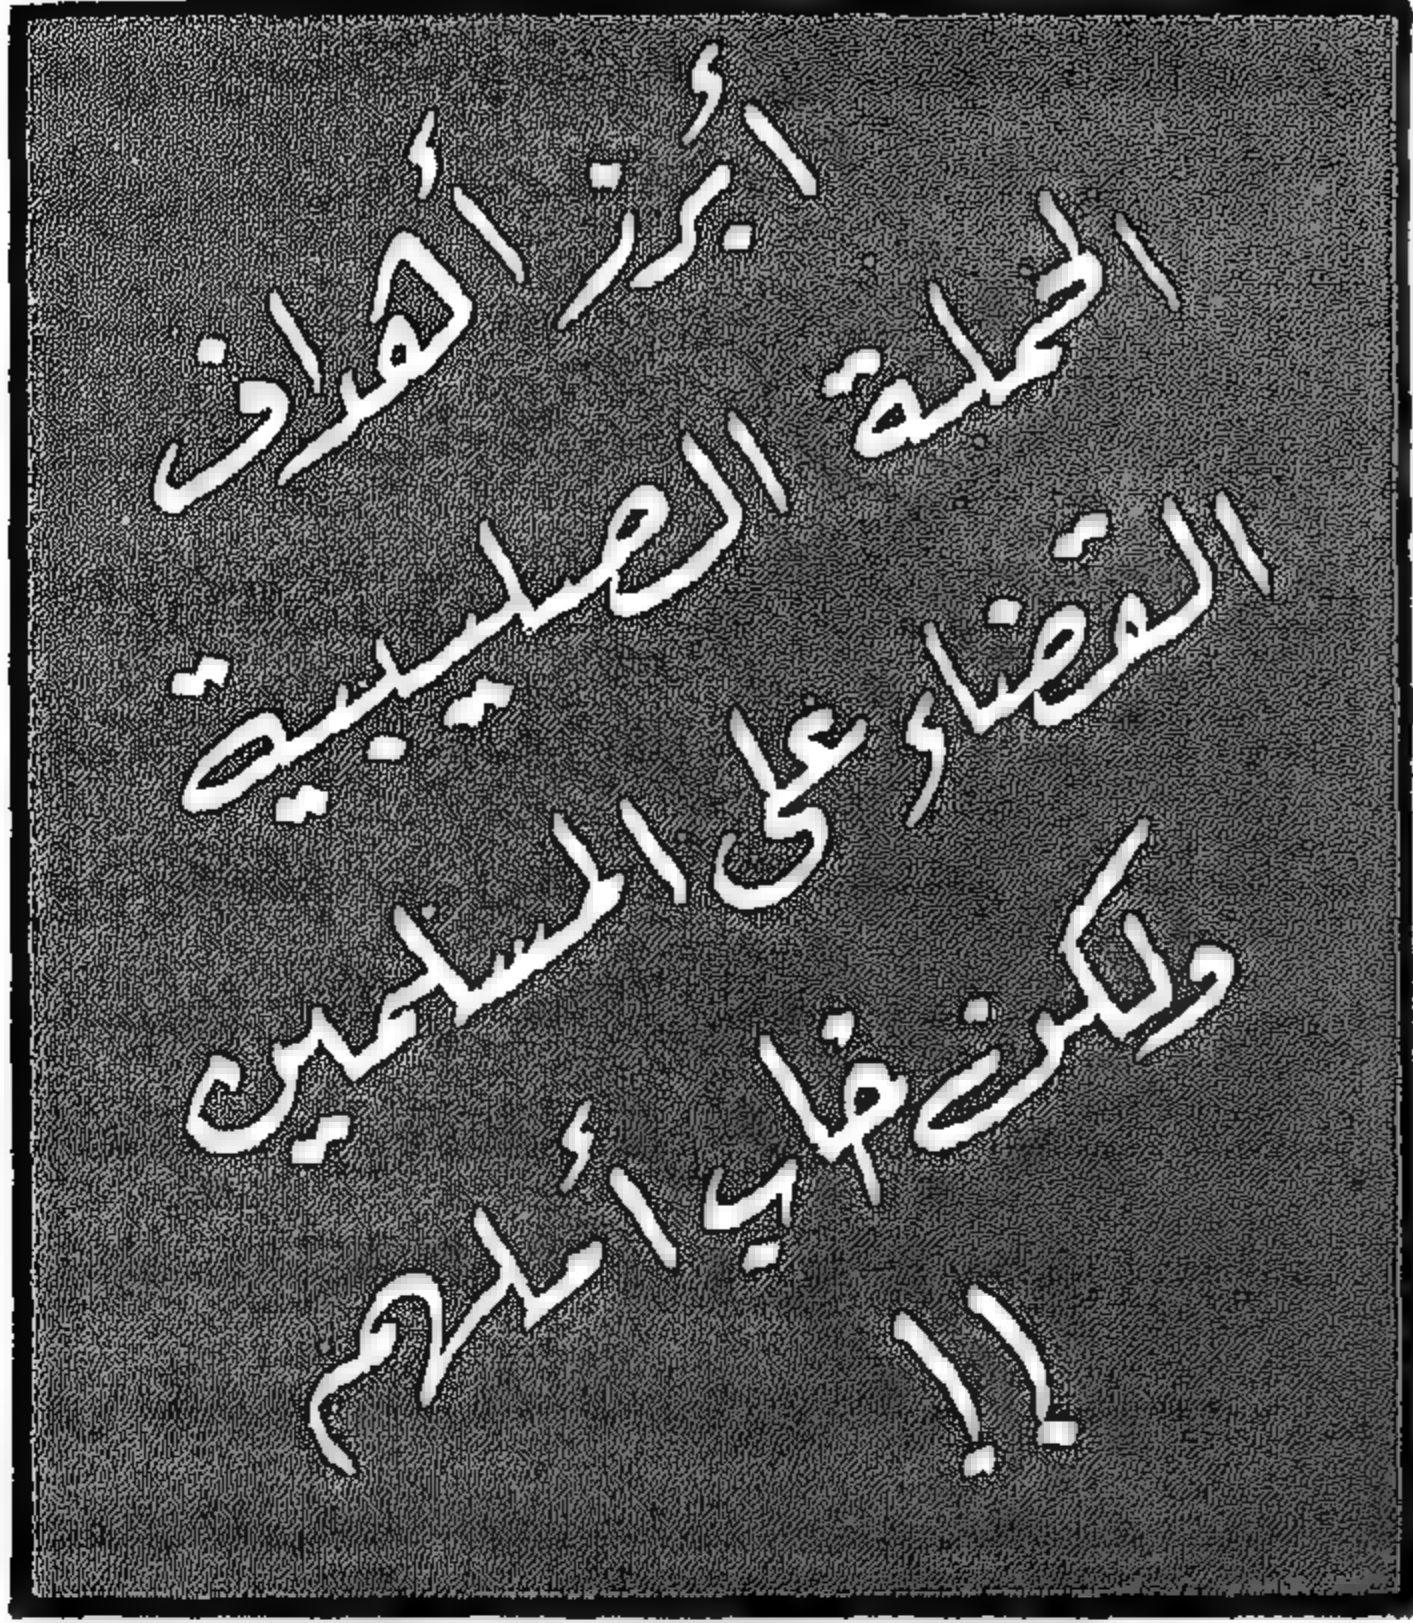 أبرز أهداف
الحملة الصليبية
القضاء على المسلمين
ولكن خاب أملهم
!!